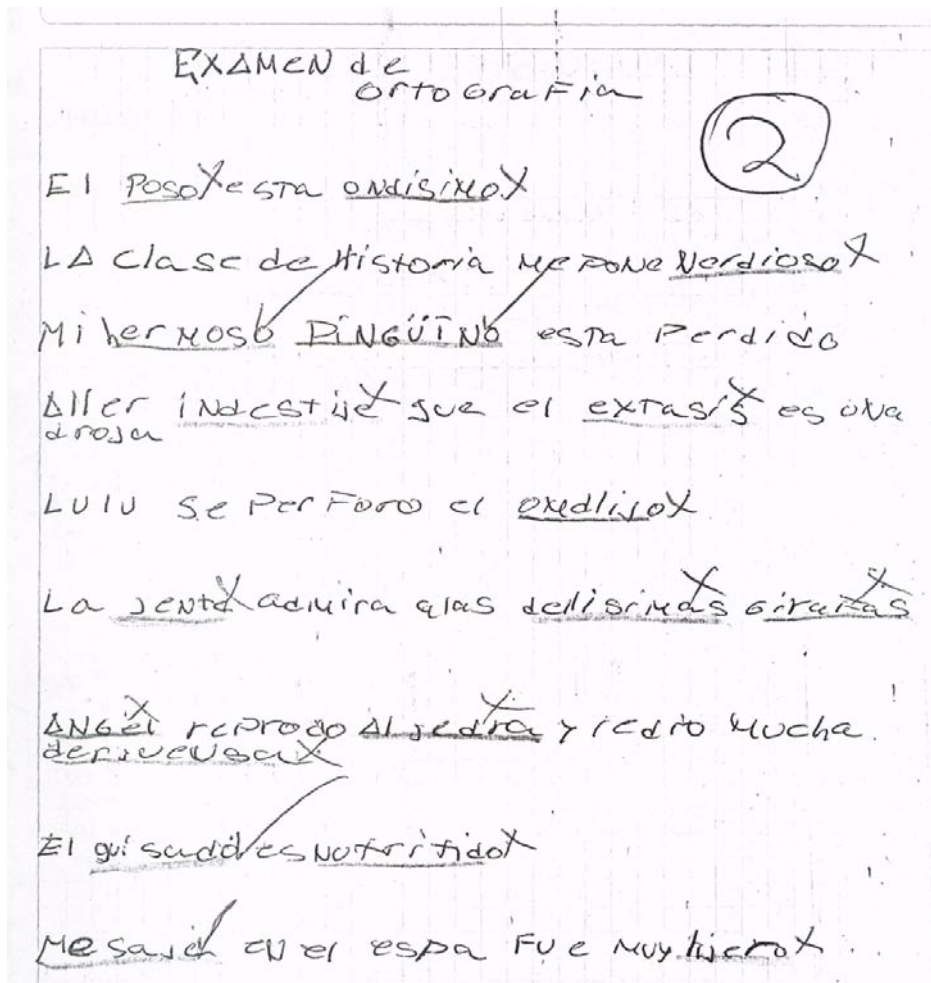 EXAMEN de
ortoGraFia
2
El Poso esta ondísimo
LA Clase de Historia me pone Nerdiosa
Mi hermoso PiNGÜiNo esta Perdido
Aller indestije que el extasís es una
droja
LUlU Se PerForo el omdlijo
La jente admira alas dellisimas Girafas
ANGel reprodo Aljedra y ledio Mucha
derjuensa
El guisado es Notritido
Mesaje en el espa FUe Muy lijero